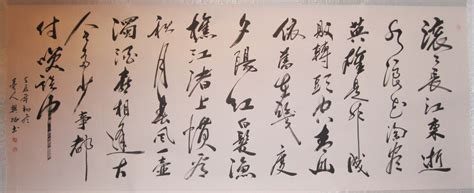 滚々長江東逝
水浪花淘尽
英雄是非成
敗轉頭空青山
依舊在幾度
夕陽紅白髮漁
樵江渚上慣看
秋月春風一壺
濁酒喜相逢古
今多少事都
付笑談中